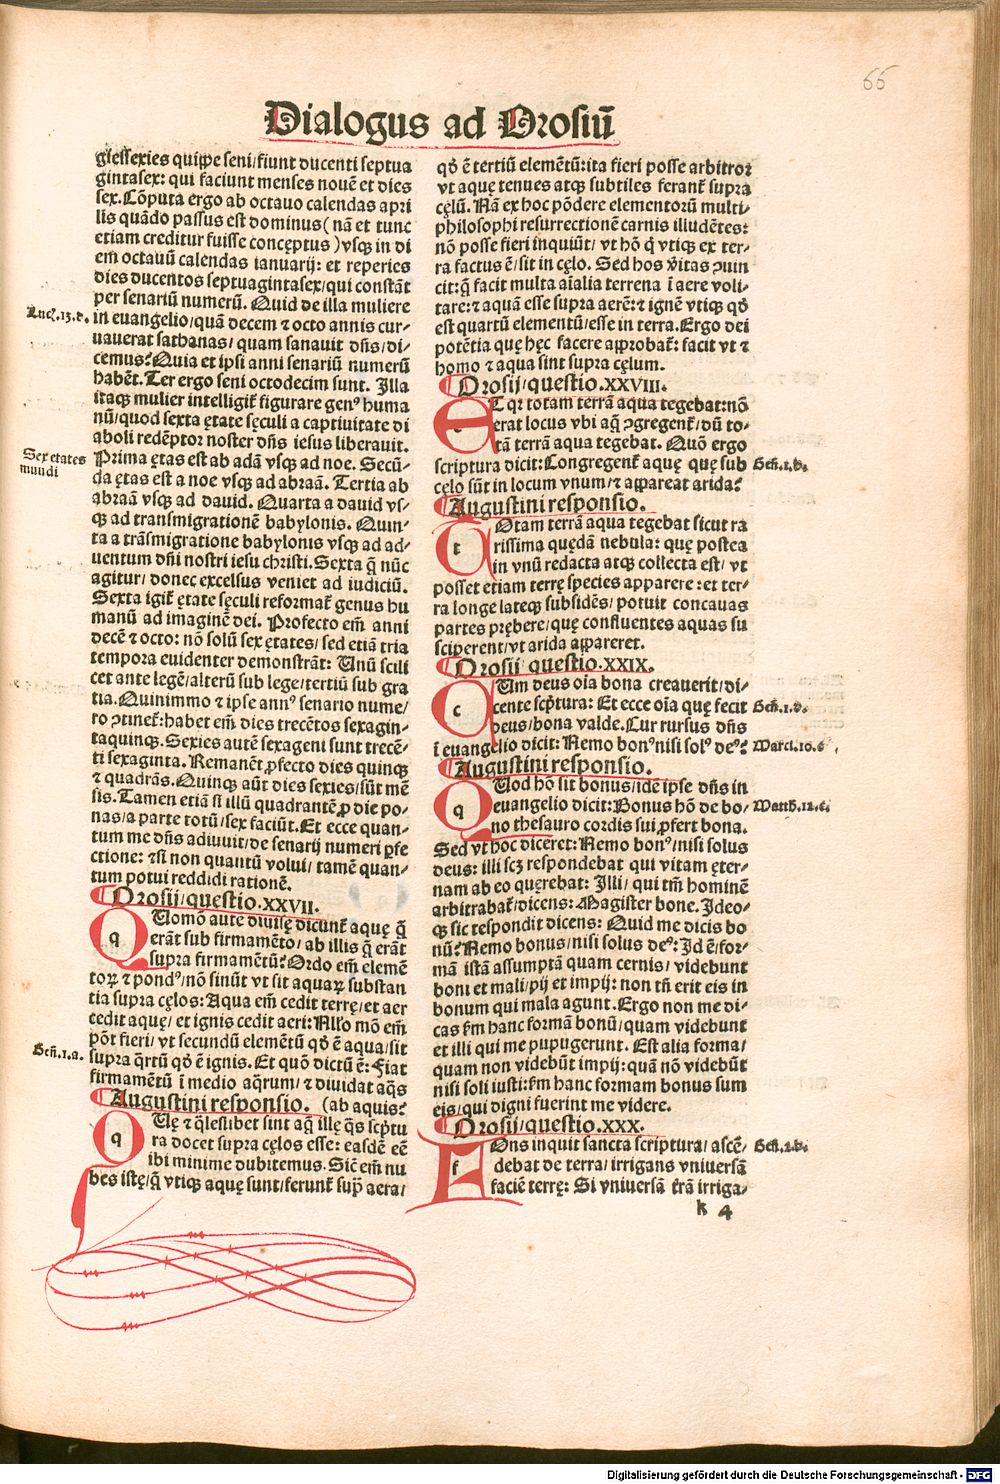 66
Dialogus ad Orosiū
giessexies quippe seni/fiunt ducenti septua
gintasex: qui faciunt menses nouē et dies
sex. Cōputa ergo ab octauo calendas apri
lis quādo passus est dominus (nā et tunc
etiam creditur fuisse concęptus) vsqꝫ in di
em octauū calendas ianuarij: et reperies
dies ducentos septuagintasex/qui constāt
per senariū numerū. Quid de illa muliere
Luc. 13. b.
in euangelio/quā decem ⁊ octo annis cur-
uauerat sathanas/ quam sanauit dn̄s/di-
cemus? Quia et ipsi anni senariū numerū
habēt. Ter ergo seni octodecim sunt. Illa
itaqꝫ mulier intelligit̄ figurare genꝰ huma
nū/quod sexta ętate sęculi a captiuitate di
aboli redēptor noster dn̄s iesus liberauit.
Sex etates
mundi
Prima ętas est ab adā vsqꝫ ad noe. Secū-
da ętas est a noe vsqꝫ ad abraā. Tertia ab
abraā vsqꝫ ad dauid. Quarta a dauid vs-
qꝫ ad transmigrationē babylonis. Quin-
ta a trāsmigratione babylonis vsqꝫ ad ad-
uentum dn̄i nostri iesu christi. Sexta q̄ nūc
agitur/ donec excelsus veniet ad iudiciū.
Sexta igit̄ ętate sęculi reformat̄ genus hu
manū ad imaginē dei. Profecto em̄ anni
decē ⁊ octo: nō solū sex ętates/ sed etiā tria
tempora euidenter demonstrāt: Unū scili
cet ante legē/alterū sub lege/tertiū sub gra
tia. Quinimmo ⁊ ipse annꝰ senario nume/
ro ꝯtinet̄: habet em̄ dies trecētos sexagin-
taquinqꝫ. Sexies autē sexageni sunt trecē-
ti sexaginta. Remanēt ꝓfecto dies quinqꝫ
⁊ quadrās. Quinqꝫ aūt dies sexies/sūt mē
sis. Tamen etiā si illū quadrantē ꝓ die po-
nas/a parte totū/sex faciūt. Et ecce quan-
tum me dn̄s adiuuit/de senarij numeri ꝑfe
ctione: ⁊si non quantū volui/ tamē quan-
tum potui reddidi rationē.
Orosij/questio.XXVII.
q
Quomō aute diuisę dicunt̄ aquę q̄
erāt sub firmamēto/ ab illis q̄ erāt
supra firmamētū? Ordo em̄ elemē
toꝝ ⁊ pondꝰ/nō sinūt vt sit aquaꝝ substan
tia supra cęlos: Aqua em̄ cedit terrę/et aer
cedit aquę/ et ignis cedit aeri: Nll'o mō em̄
pōt fieri/ vt secundū elemētū qd' ē aqua/sit
Geñ. 1. a.
supra q̄rtū qd' ē ignis. Et quō dictū ē: Fiat
firmamētū ī medio aq̄rum/ ⁊ diuidat aq̄s
Augustini responsio. (ab aquis?
q
Quę ⁊ q̄leslibet sint aq̄ illę q̄s scp̄tu
ra docet supra cęlos esse: easdē eē
ibi minime dubitemus. Sic em̄ nu
bes istę/q̄ vtiqꝫ aquę sunt/ferunt̄ sup̄ aera/
qd' ē tertiū elemētū: ita fieri posse arbitror
vt aquę tenues atqꝫ subtiles ferant̄ supra
cęlū. Nā ex hoc pōdere elementorū multi/
philosophi resurrectionē carnis illudētes:
nō posse fieri inquiūt/ vt hō q̄ vtiqꝫ ex ter-
ra factus ē/sit in cęlo. Sed hos v̄itas ꝯuin
cit: q̄ facit multa aīalia terrena ī aere voli-
tare: ⁊ aquā esse supra aerē: ⁊ ignē vtiqꝫ qd'
est quartū elementū/esse in terra. Ergo dei
potētia quę hęc facere app̄robat̄: facit vt ⁊
homo ⁊ aqua sint supra cęlum.
Orosij/questio.XXVIII.
e
Et qꝛ totam terrā aqua tegebat: nō
erat locus vbi aq̄ ꝯgregent̄/dū to-
tā terrā aqua tegebat. Quō ergo
scriptura dicit: Congregent̄ aquę quę sub
Geñ. 1. b.
cęlo sūt in locum vnum/⁊ appareat arida?
Augustini responsio.
t
Totam terrā aqua tegebat sicut ra
rissima quędā nebula: quę postea
in vnū redacta atqꝫ collecta est/ vt
posset etiam terrę species apparere: et ter-
ra longe lateqꝫ subsidēs/ potuit concauas
partes prębere/quę confluentes aquas su
sciperent/vt arida appareret.
Orosij questio.XXIX.
c
Cum deus oīa bona creauerit/di-
cente scp̄tura: Et ecce oīa quę fecit
Geñ. 1. d.
deus/bona valde. Cur rursus dn̄s
ī euangelio dicit: Nemo bonꝰ nisi solꝰ deꝰ?
Marci. 10. b
Augustini responsio.
q
Quod hō sit bonus/ide ipse dn̄s in
euangelio dicit: Bonus hō de bo-
Matth. 12. c.
no thesauro cordis sui ꝓfert bona.
Sed vt hoc diceret: Nemo bonꝰ/nisi solus
deus: illi scꝫ respondebat qui vitam ęter-
nam ab eo quęrebat: Illi/ qui tm̄ hominē
arbitrabat̄/dicens: Magister bone. Ideo-
qꝫ sic respondit dicens: Quid me dicis bo
nū? Nemo bonus/nisi solus deꝰ: Id ē/for-
mā istā assumptā quam cernis/ videbunt
boni et mali/pij et impij: non tn̄ erit eis in
bonum qui mala agunt. Ergo non me di-
cas ẜm hanc formā bonū/quam videbunt
et illi qui me pupugerunt. Est alia forma/
quam non videbūt impij: quā nō videbūt
nisi soli iusti: ẜm hanc formam bonus sum
eis/qui digni fuerint me videre.
Orosij/questio.XXX.
f
Fons inquit sancta scriptura/ ascē-
Geñ. 2. b.
debat de terra/irrigans vniuersā
faciē terrę: Si vniuersā t̄rā irriga/
k 4
Digitalisierung gefördert durch die Deutsche Forschungsgemeinschaft - DFG